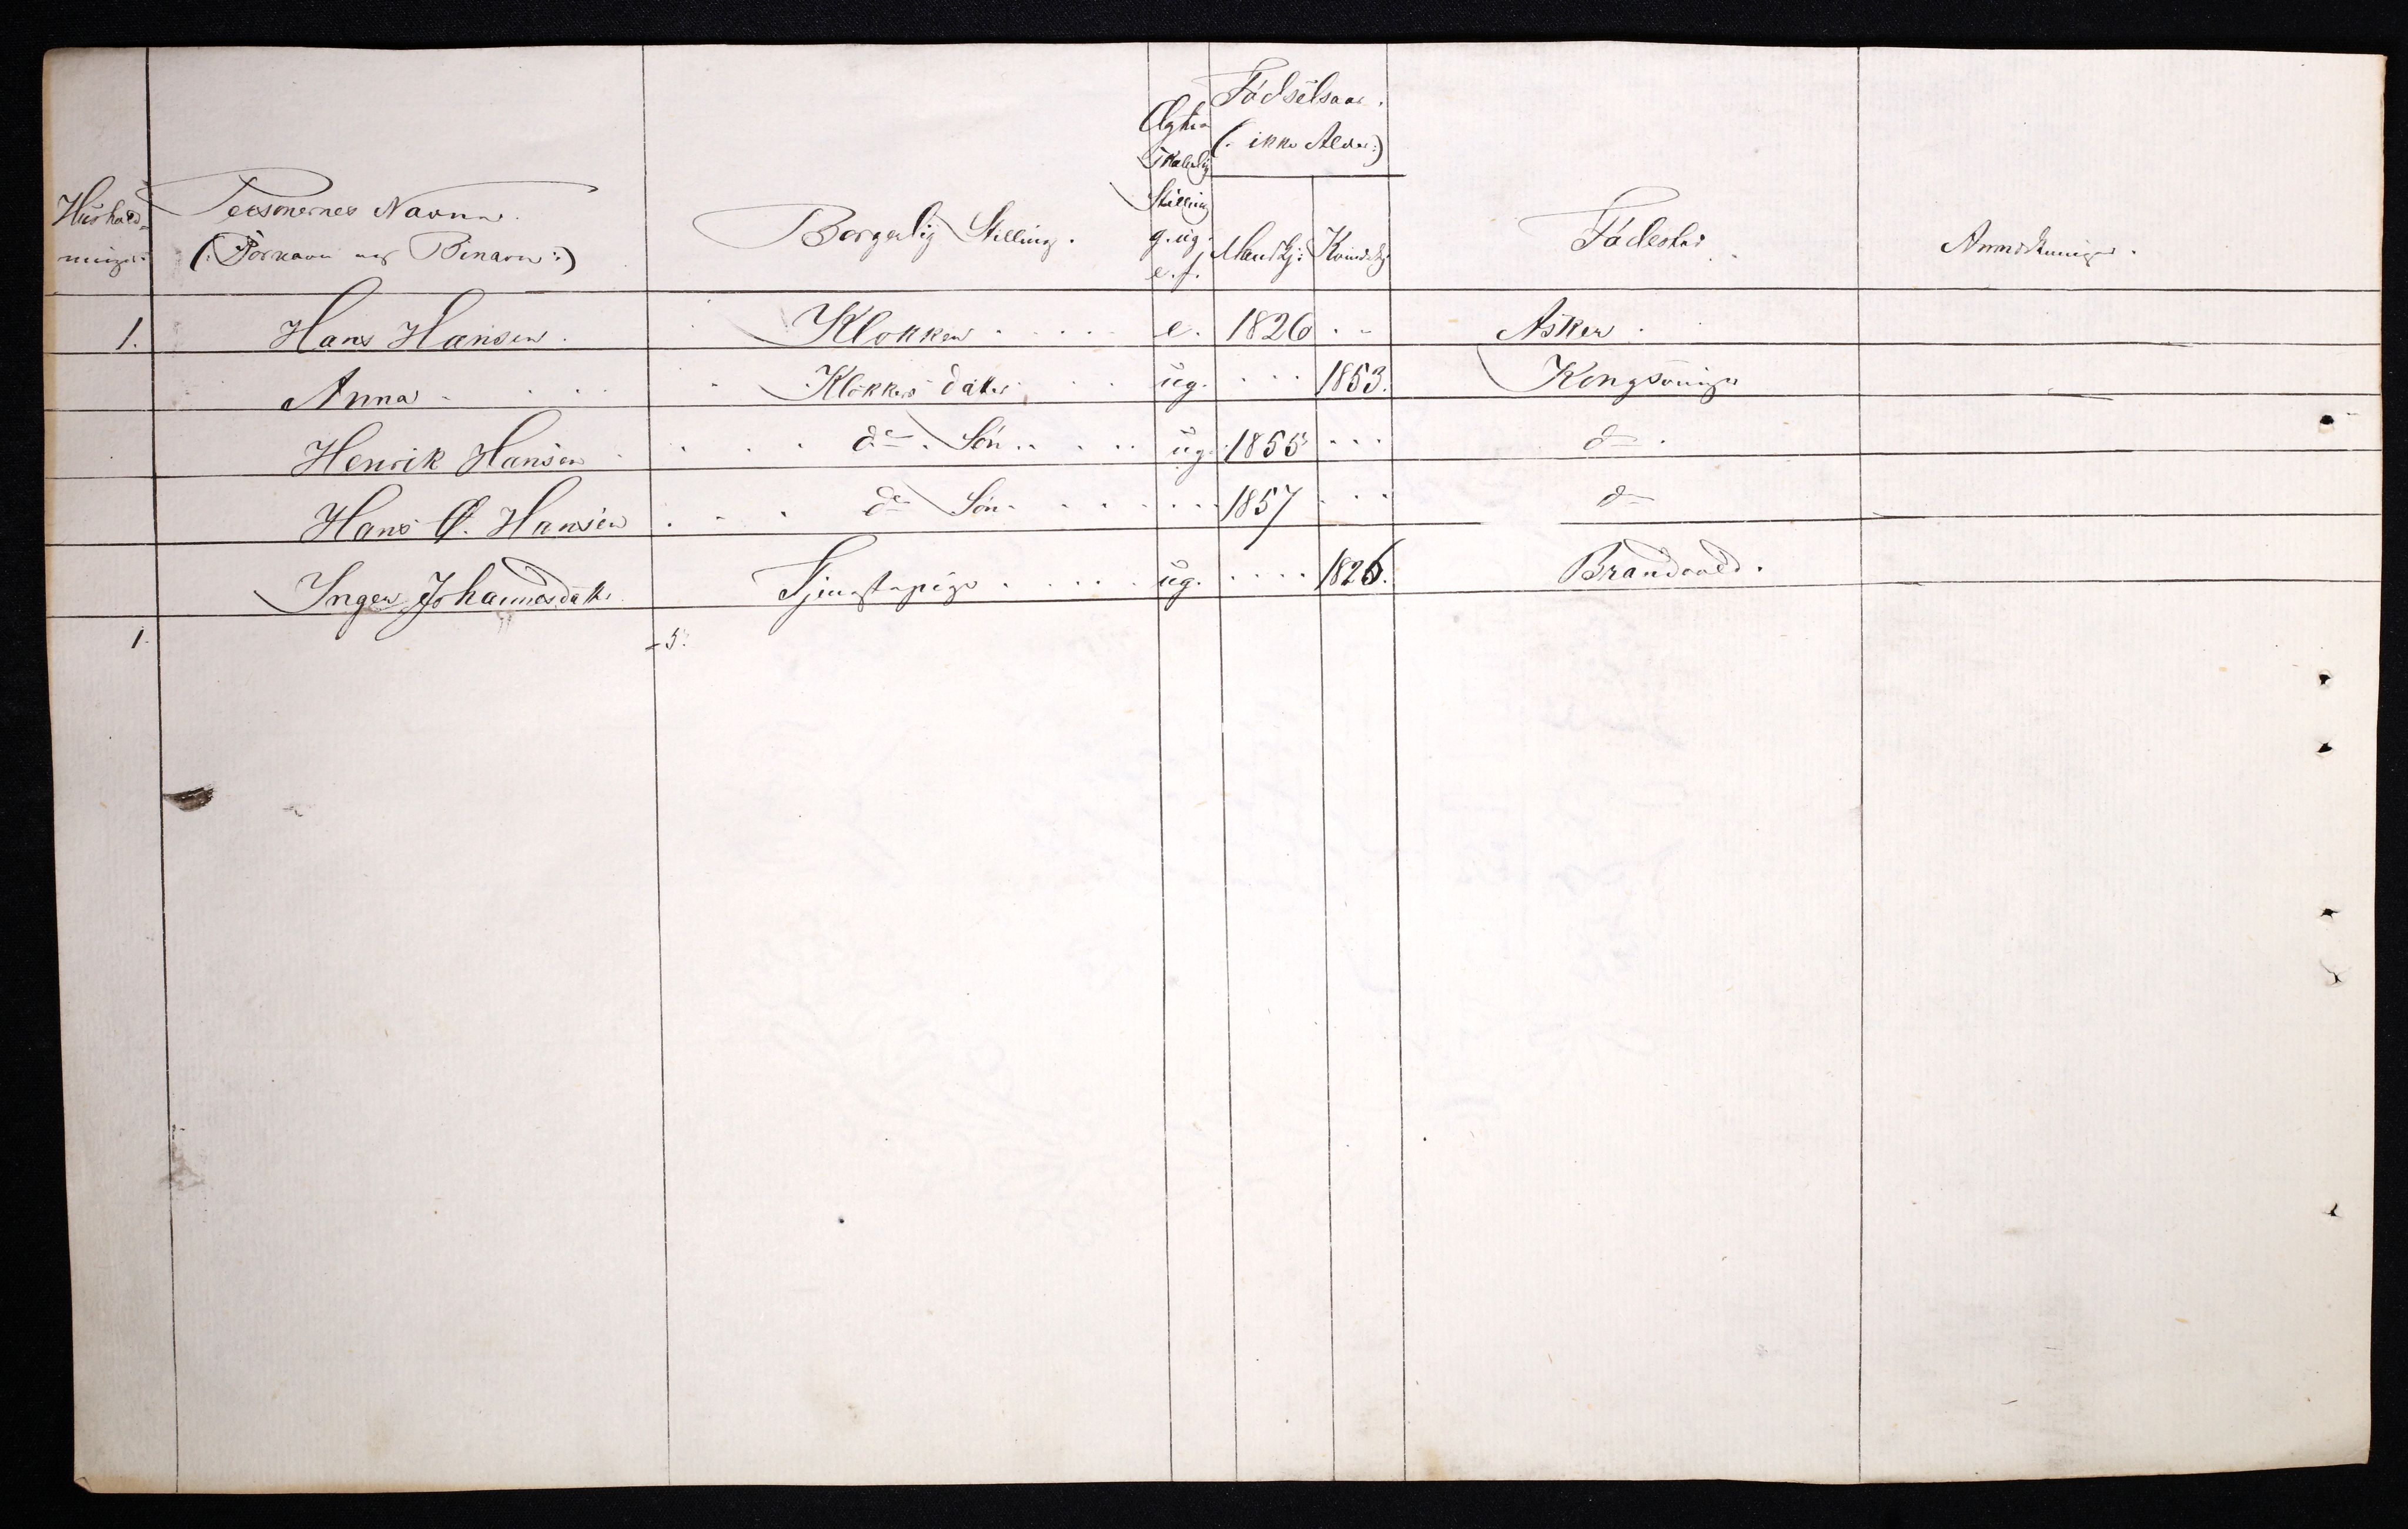 Fødselsaar.
Ægteskabelig Stilling g. ug. e. f.
(: ikke Alder:)
Hushold-
Personernes Navne.
(: Fornavn og Binavn :)
Borgerlig Stilling.
Mandkj: Kvindekj:
Fødested
Anmærkninger.
1. Hans Hansen. Klokker e. 1826 Asker.
Anna Klokkers datter ug. 1853. Kongsvinger
Henrik Hansen do. Søn ug. 1855 do.
Hans O. Hansen do. Søn 1857 do
Inger Johannesdatter Tjenestepige ug. 1826. Brandvold.
1. 5.